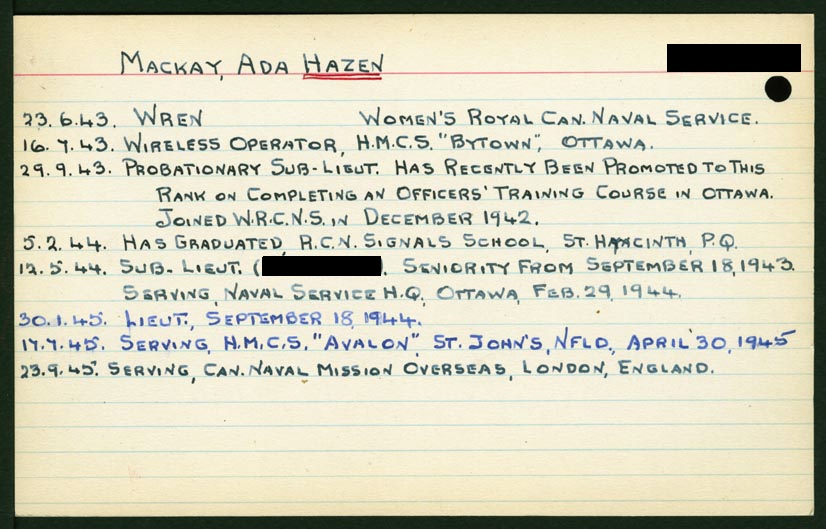 MACKAY, ADA HAZEN
23.6.43. WREN WOMEN'S ROYAL CAN. NAVAL SERVICE.
16.7.43. WIRELESS OPERATOR, H.M.C.S. "BYTOWN", OTTAWA.
29.9.43. PROBATIONARY SUB-LIEUT. HAS RECENTLY BEEN PROMOTED TO THIS
RANK ON COMPLETING AN OFFICERS' TRAINING COURSE IN OTTAWA.
JOINED W.R.C.N.S. IN DECEMBER 1942.
5.2.44. HAS GRADUATED, R.C.N. SIGNALS SCHOOL, ST. HYACINTH, P.Q.
12.5.44. SUB-LIEUT. ( ). SENIORITY FROM SEPTEMBER 18, 1943.
SERVING, NAVAL SERVICE H.Q, OTTAWA, FEB. 29, 1944.
30.1.45. LIEUT., SEPTEMBER 18, 1944.
17.7.45. SERVING, H.M.C.S. "AVALON", ST. JOHN'S, NFLD., APRIL 30, 1945
23.9.45. SERVING, CAN. NAVAL MISSION OVERSEAS, LONDON, ENGLAND.